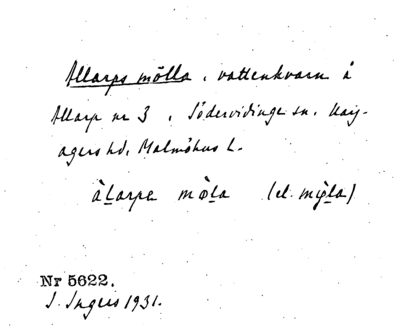 Allarps mölla, vattenkvarn å
Allarp nr 3, Södervidinge sn. Harj-
agers hd, Malmöhus L.
àḷarpa mø̀ḷa (el. mø̀i̯ḷa)
Nr 5622.
I. Ingers 1931.